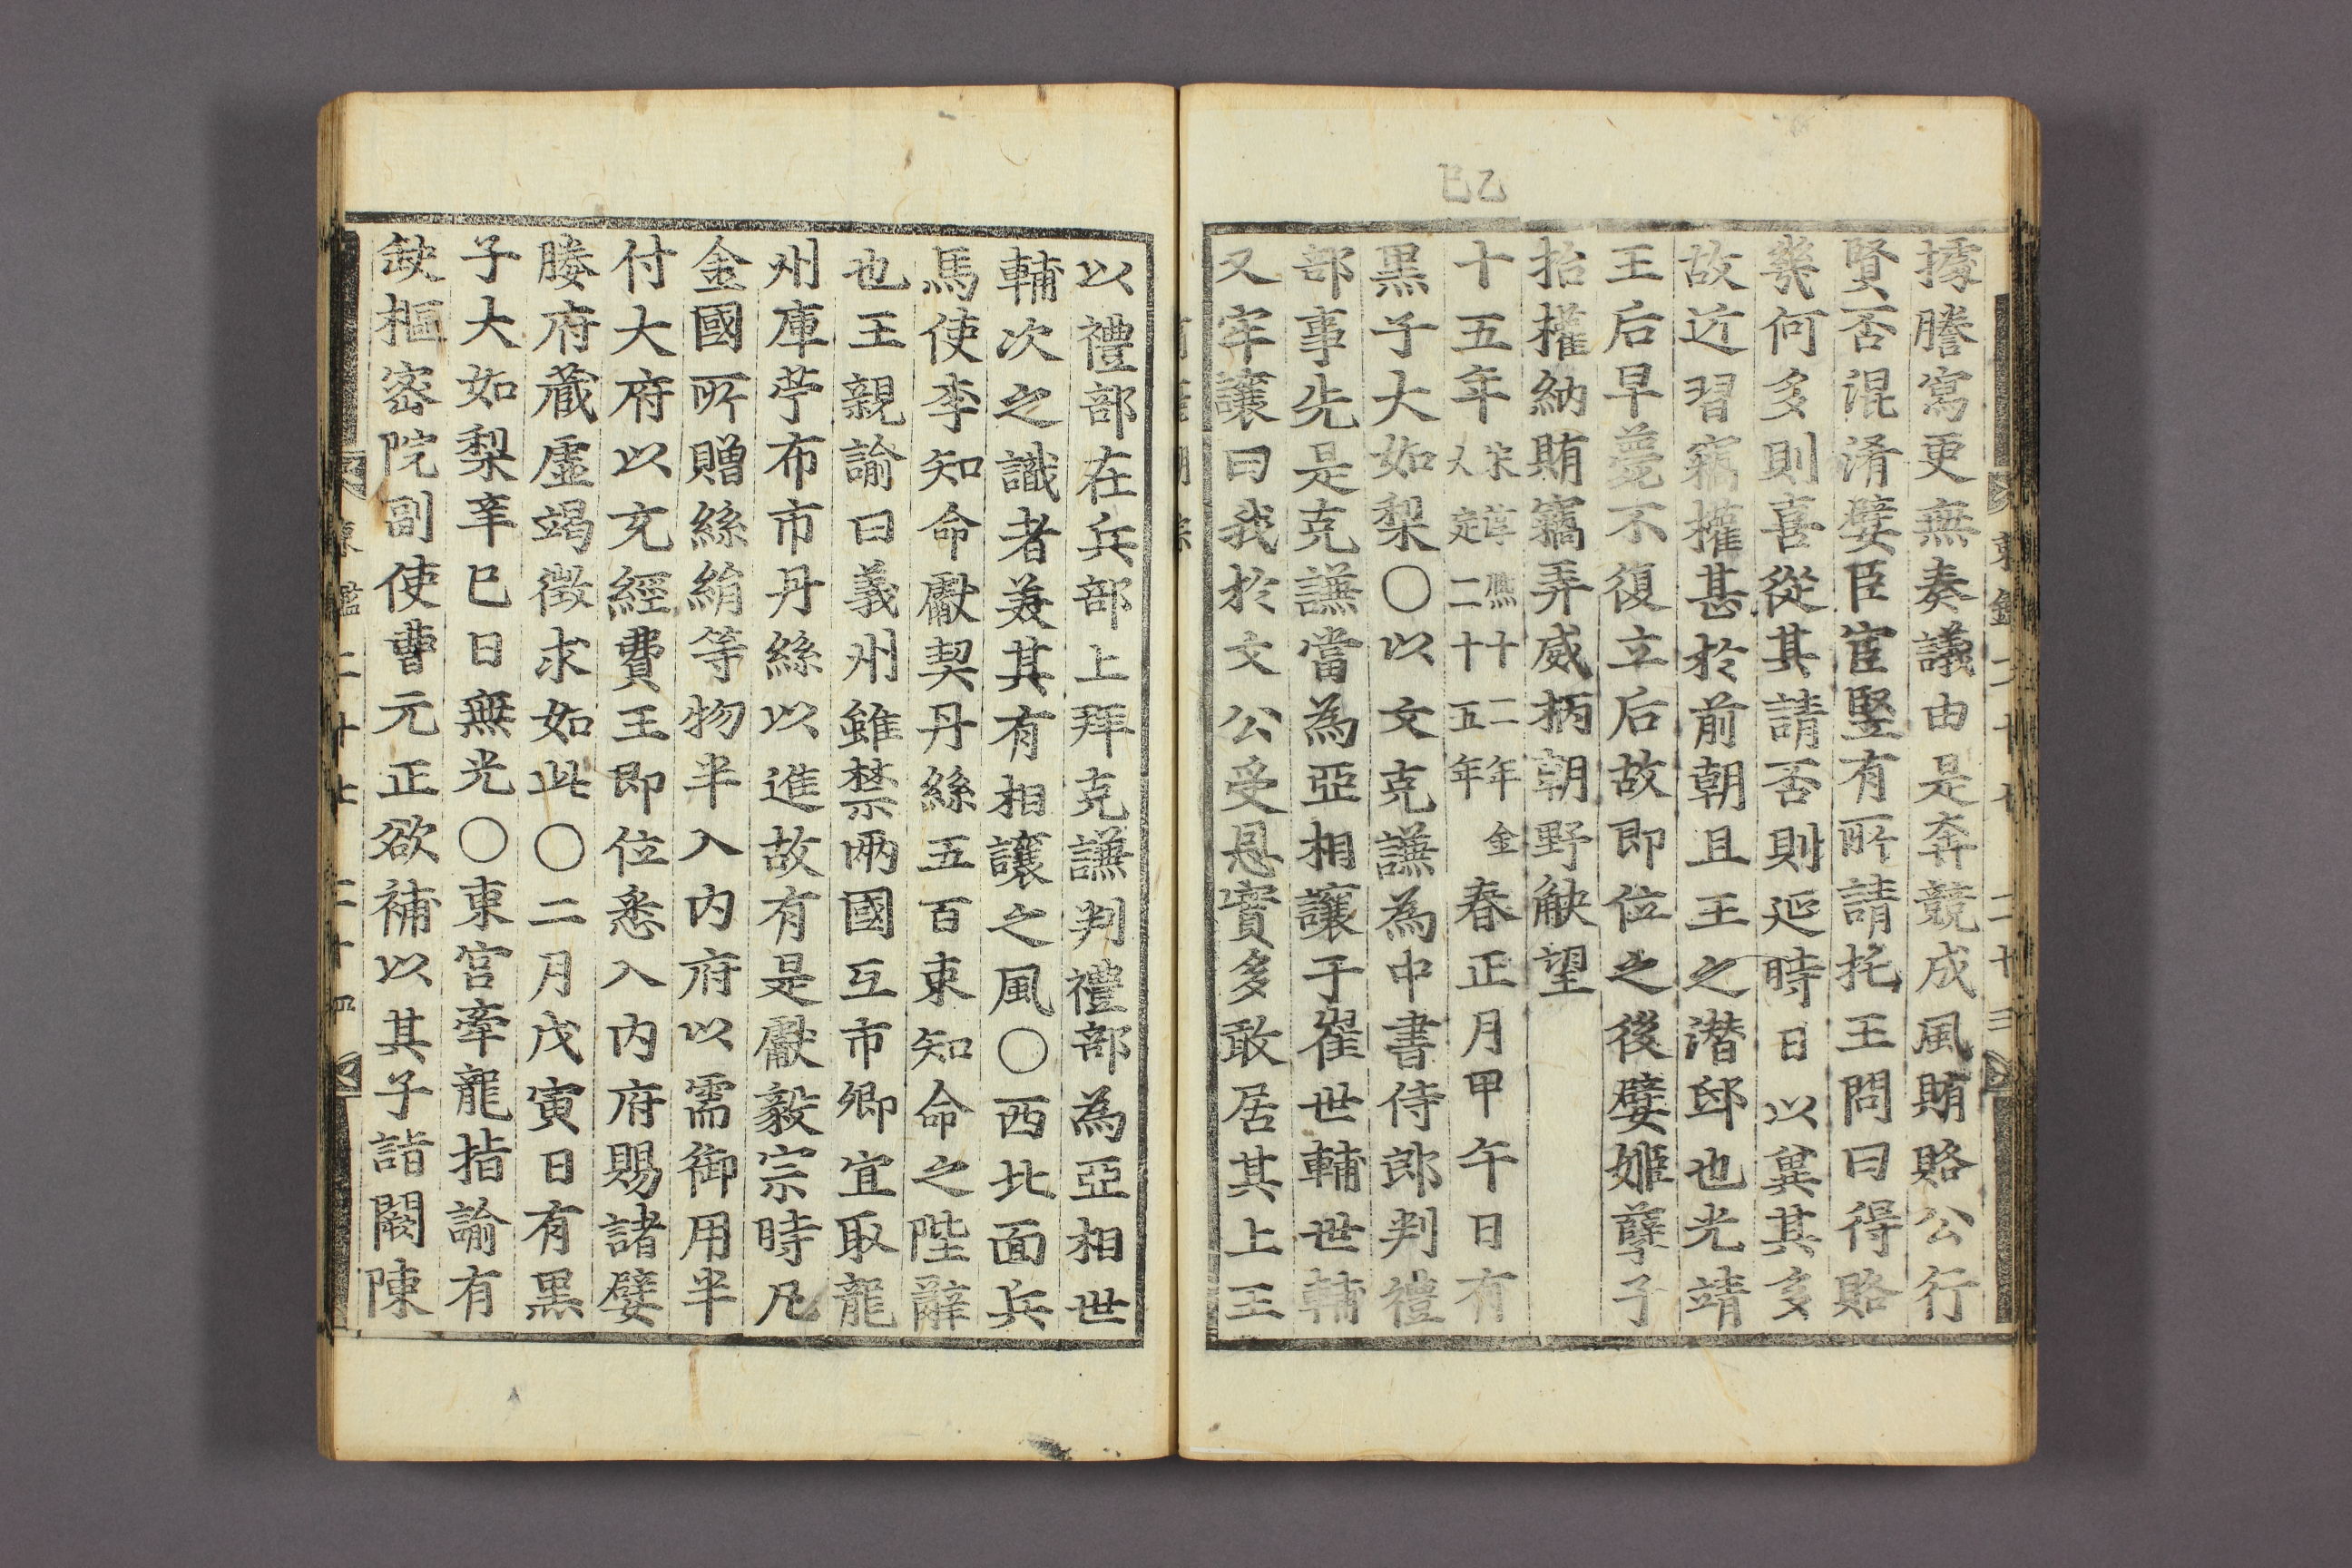 據謄寫更無奏議由是奔競成風賄賂公行
賢否混淆嬖臣宦豎有所請托王問曰得賂
幾何多則喜從其請否則延時日以冀其多
故近習竊權甚於前朝且王之潛邸也光靖
王后早薨不復立后故即位之後嬖姬孽子
招權納賄竊弄威柄朝野觖望
乙巳
十五年宋淳熙十二年金大定二十五年春正月甲午日有
黑子大如梨〇以文克謙為中書侍郎判禮
部事先是克謙當為亞相讓于崔世輔世輔
又牢讓曰我於文公受恩實多敢居其上王
以禮部在兵部上拜克謙判禮部為亞相世
輔次之識者美其有相讓之風〇西北面兵
馬使李知命獻契丹絲五百束知命之陛辭
也王親諭曰義州雖禁兩國互市卿宜取龍
州庫苧布市丹絲以進故有是獻毅宗時凡
金國所贈絲絹等物半入內府以需御用半
付大府以充經費王即位悉入內府賜諸嬖
媵府藏虛竭徵求如此〇二月戊寅日有黑
子大如梨辛巳日無光〇東宮牽龍指諭有
缺樞密院副使曹元正欲補以其子詣闕陳
東鑑二十七 二十四